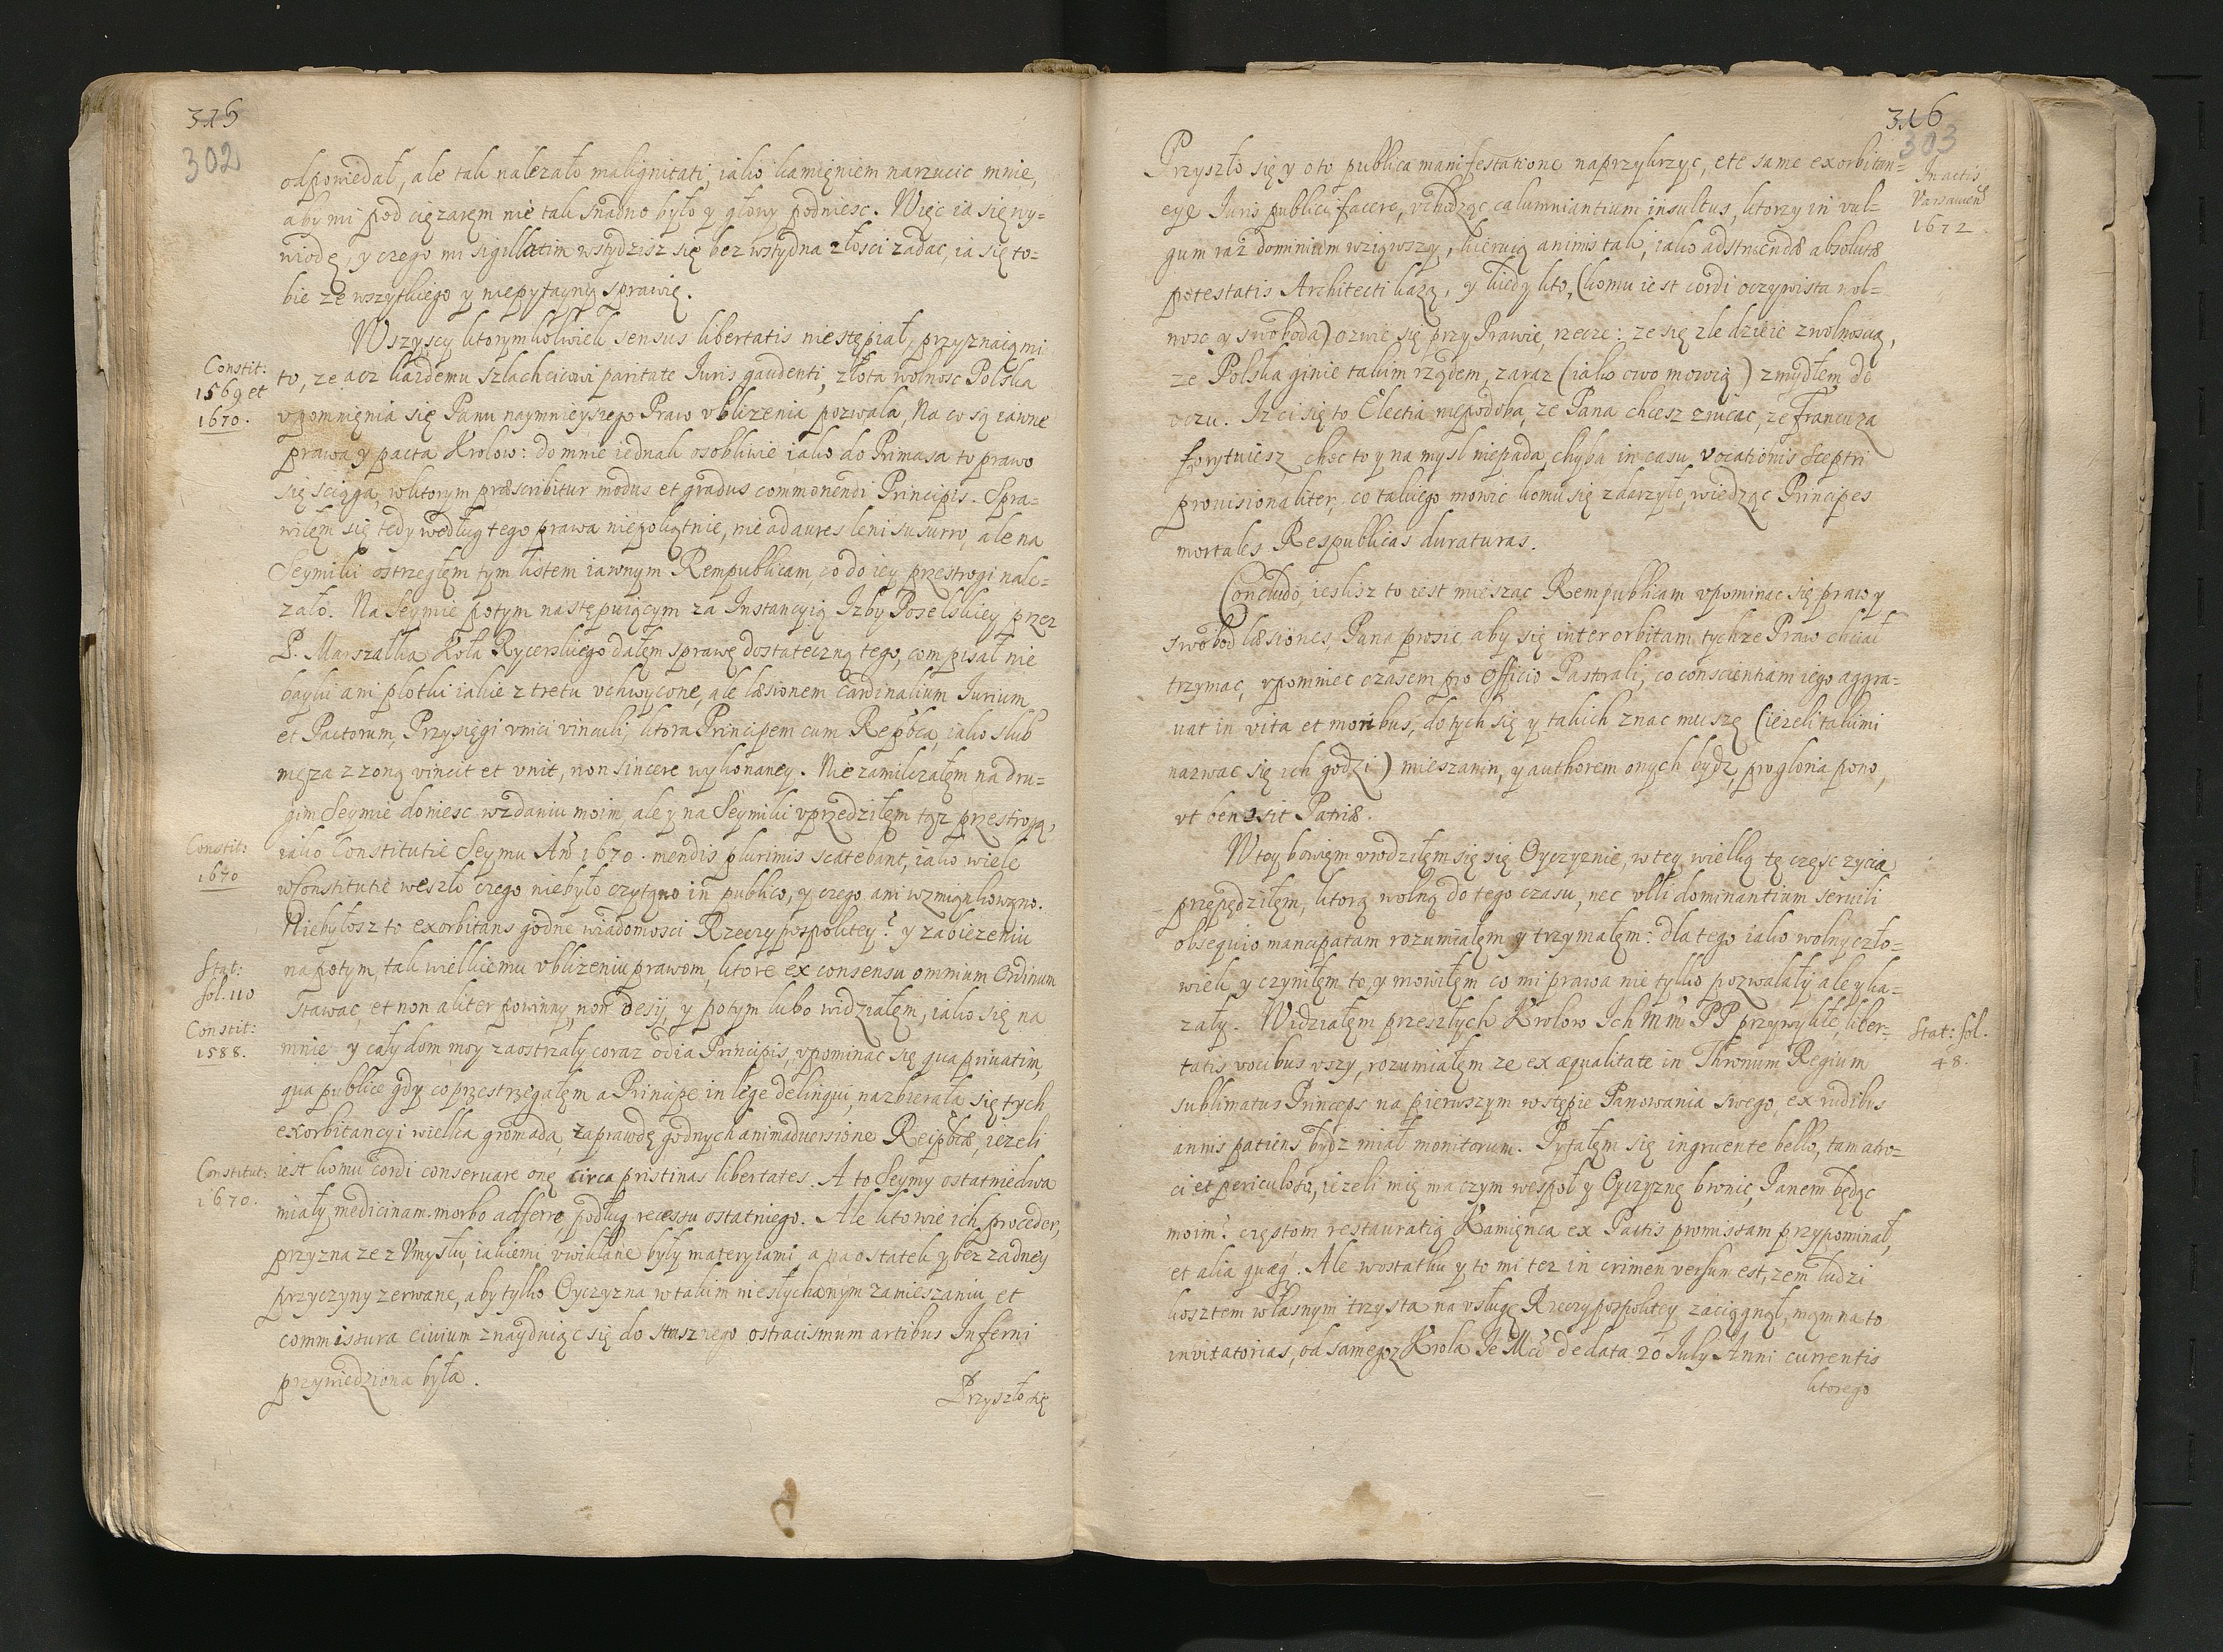 315
302
odpowiedał, ale tak należało malignitati, iako kamięniem narzucic mnie,
aby mi pod ciężaręm nie tak snadno było y głowy podniesc. Więc ia się wy=
wiodę, y czego mi sigillatim wstydzisz się bez wstydna złosci zadac, ia się to=
bie ze wszytkiego y niepytayny sprawię.
Wszyscy ktorymkolwiek sensus libertatis niestępiał, przyznaią mi
Constit:
1569 et
1670.
to, ze acz kazdemu Szlachcicowi paritate Iuris gaudenti, złota wolnosc Polska
vpomnięnia się Panu naymnieyszego Praw vblizenia pozwala, Na co są iawne
prawa y pacta Krolow: do mnie iednak osobliwie iako do Primasa to prawo
się sciąga, wktorym præscribitur modus et gradus commonendi Principis. Spra=
wiłęm się tedy według tego prawa niepokątnie, nie ad aures leni susurro, ale na
Seymiku ostrzegłęm tym listem iawnym Rempublicam co do iey przestrogi nale=
zało. Na Seymie potym następuiącym za Instancyią Izby Poselskiey przez
P. Marszałka Koła Rycerskiego dałęm sprawę dostateczną tego, com pisał nie
bayki ani plotki iakie z tretu vchwycone, ale læsionem Cardinalium Iurium
et Pactorum, Przysięgi vnici vinculi, ktora Principem cum Repbca, iako slub
męza z zoną vincit et vnit, non sincere wykonaney. Nie zamilczałęm na dru=
gim Seymie doniesc wzdaniu moim, ale y na Seymiku vprzedziłęm tąz przestrogą,
Constit:
1670
iako Constitutie Seymu Aō 1670. mendis plurimis scatebant, iako wiele
wConstitutie weszło czego niebyło czytąno in publico, y czego ani wzmiąnkowąno.
Niebyłosz to exorbitans godne wiadomosci Rzeczypospolitey? y zabiezeniu
Stat:
fol. 110
Constit:
1588.
napotym, tak wielkiemu vblizeniu prawom, ktore ex consensu omnium Ordinum
stawac, et non aliter powinny, non desij, y potym lubo widziałęm, iako się na
mnie y cały dom moy zaostrzały coraz odia Principis, vpominac się qua priuatim,
qua publice gdy co przestrzegałęm a Principe in lege delinqui, nazbierała się tych
exorbitancyi wielka gromada, zaprawdę godnych animaduersione Reipbcæ, iezeli
Constitut:
1670.
iest komu cordi conseruare onę circa pristinas libertates. A to Seymy ostatnie dwa
miały medicinam morbo adferre, podług recessu ostatniego. Ale kto wie ich proceder,
przyzna ze z Vmysłu, iakiemi vwikłane były materyiami a na ostatek y bez zadney
przyczyny zerwane, aby tylko Oyczyzna w takim niesłychanym zamieszaniu et
commissura ciuium znayduiąc się do straszne̲go ostracismum artibus Inferni
przywiedziona była.
Przyszło się
316
303
Przyszło się y o to publica manifestatione naprzykrzyc, ete same exorbitan=
In actis
Varsauien̄
1672.
cye Iuris publici facere, vchodząc calumniantium insultus, ktorzy in vul=
gum raz dominium wziąwszy, kieruią animis tak, iako adstruendæ absolutæ
potestatis Architecti każą, y kiedy kto, (komu iest cordi oczywista wol=
nosc y swoboda) ozwie się przy Prawie, rzecze: ze się zle dzieie z wolnoscią,
ze Polska ginie takim rządem, zaraz (iako owo mowią) z mydłem do
oczu. Iż ci się to Electia niepodoba, ze Pana chcesz zrucac, ze Francuza
forytuiesz, choc to y na mysl niepada, chyba in casu vocationis Sceptri
prouisionaliter, co takiego mowic komu się zdarzyło, wiedząc Principes
mortales Respublicas duraturas.
Concludo, ieslisz to iest mieszac Rempublicam vpominac się praw y
swobod læsiones, Pana prosic aby się inter orbitam tychze Praw chciał
trzymac, vpomniec czasem pro Officio Pastorali, co conscientiam iego aggra=
uat in vita et moribus, do tych się y takich znac muszę (iezeli takimi
nazwac się ich godzi) mieszanin, y authorem onych bydz, pro gloria pono,
vt bene sit Patriæ.
W toy bowięm vrodziłęm się się Oyczyznie, w tey wielką tę częsc zycia
przepędziłęm, ktorą wolną do tego czasu, nec vlli dominantium seruili
obsequio mancipatam rozumiałęm y trzymałęm: dla tego iako wolny czło=
wiek y czyniłęm to, y mowiłęm co mi prawa nie tylko pozwalały ale y ka=
zały. Widziałęm przeszłych Krolow Ich Mm PP przywykłe, liber=
Stat: fol.
48.
tatis vocibus vszy, rozumiałęm ze ex æqualitate in Thronum Regium
sublimatus Princeps na pierwszym wstępie Panowania swego, ex rudibus
annis patiens bydz miał monitorum. Pytałęm się ingruente bello, tam atro=
ci et periculoso, iezeli mię ma czym wespoł y Oyczyznę bronic, Panem będąc
moim? częstom restauratią Kamięnca ex Pactis promissam przypominał,
et alia quæq̃. Ale wostatku y to mi tez in crimen versum est, zem ludzi
kosztem własnym trzysta na vsługę Rzeczypospolitey zaciągnął, mąm na to
inuitatorias, od samegoz Krola Ie Mci de data 20 Iuly Anni currentis
ktorego